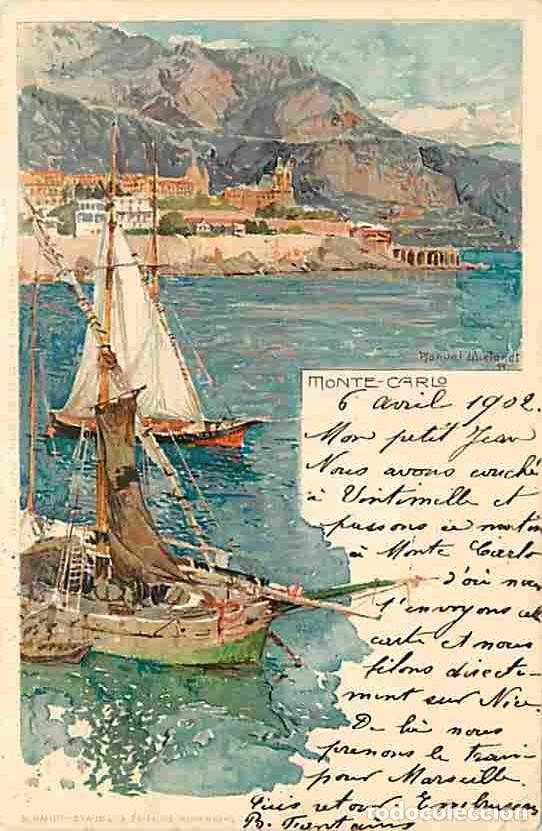 Manuel Wielandt
MONTE-CARLO
6 avril 1902.
Mon petit Jean
Nous avons couché
à Vintimille et
passons ce matin
à Monte Carlo
d'où nous
t'envoyons cette
carte et nous
filons directe-
ment sur Nice.
De là nous
prenons le train
pour Marseille
Puis retour Embrun
todocoleccion